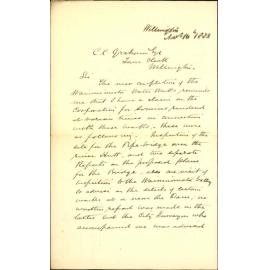 Wellington
Nov 16th 1888
C. C. Graham Esq
Town Clerk
Wellington
Sir
The near completion of the
Wainuiomata Water Works, reminds
me that I have a claim on the
Corporation for services rendered
at various times in connection
with these works, these were
as follows viz. Inspection of the
site for the Pipe-bridge over the
river Hutt, and two separate
Reports on the proposed plans
for the Bridge, also one visit of
inspection to the Wainuiomata Valley
to advise on the details of certain
works at or near the Dam, no
written report was made on the
latter but the City Surveyor who
accompanied me was advised